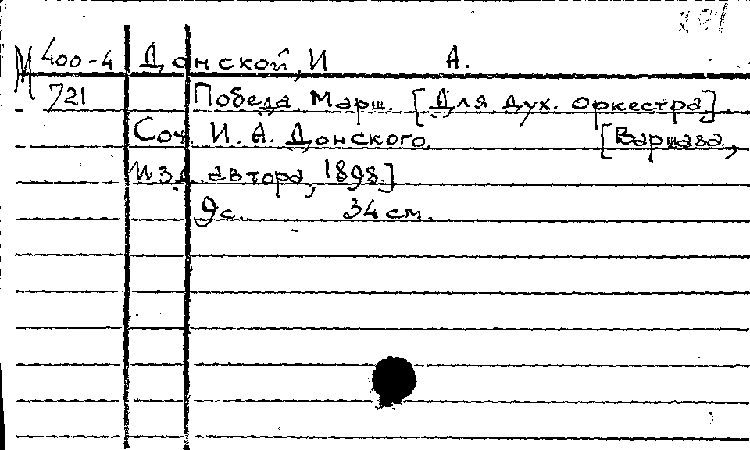 М 400-4 Донской, И А.
721 Победа. Марш. [Для дух. оркестра].
Соч. И. А. Донского. [Варшава,
Изд. автора, 1898.]
9 с. 34 см.